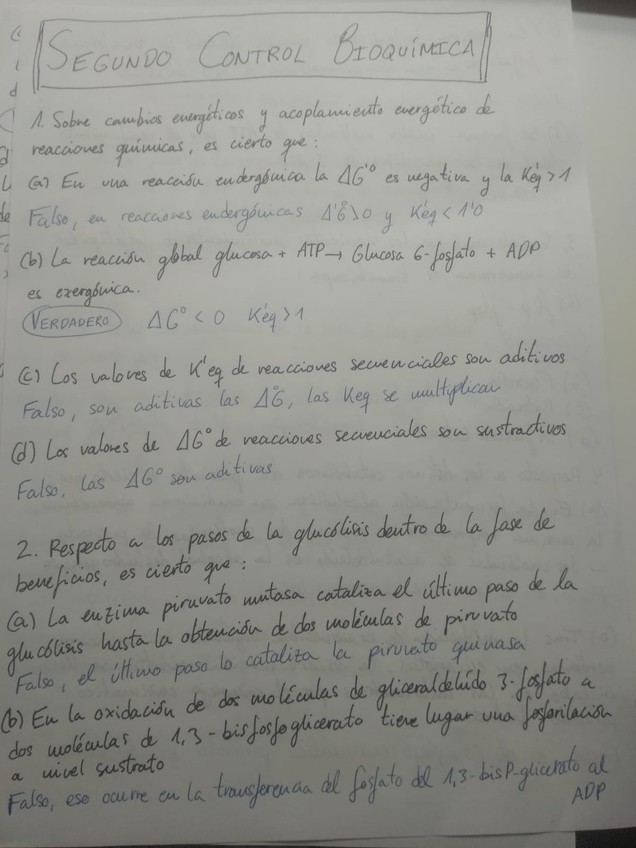 SEGUNDO CONTROL BIOQUÍMICA
1. Sobre cambios energéticos y acoplamiento energético de
reacciones químicas, es cierto que:
(a) En una reacción endergónica la ΔG'° es negativa y la K'eq > 1
Falso, en reacciones endergónicas Δ'G° > 0 y K'eq < 1'0
(b) La reacción global glucosa + ATP → Glucosa 6-fosfato + ADP
es exergónica.
VERDADERO ΔG° < 0 K'eq > 1
(c) Los valores de K'eq de reacciones secuenciales son aditivos
Falso, son aditivas las ΔG°, las Keq se multiplican
(d) Los valores de ΔG° de reacciones secuenciales son sustractivos
Falso, las ΔG° son aditivas
2. Respecto a los pasos de la glucólisis dentro de la fase de
beneficios, es cierto que:
(a) La enzima piruvato mutasa cataliza el último paso de la
glucólisis hasta la obtención de dos moléculas de piruvato
Falso, el último paso lo cataliza la piruvato quinasa
(b) En la oxidación de dos moléculas de gliceraldehído 3-fosfato a
dos moléculas de 1,3-bisfosfoglicerato tiene lugar una fosforilación
a nivel sustrato
Falso, eso ocurre en la transferencia del fosfato del 1,3-bisP-glicerato al
ADP